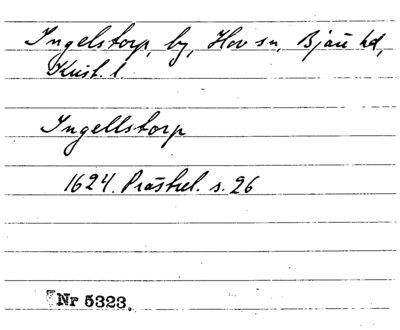 Ingelstorp, by, Hov sn, Bjäre hd,
Krist. l
Ingellstorp
1624. Prästrel. s. 26
Nr 5323.